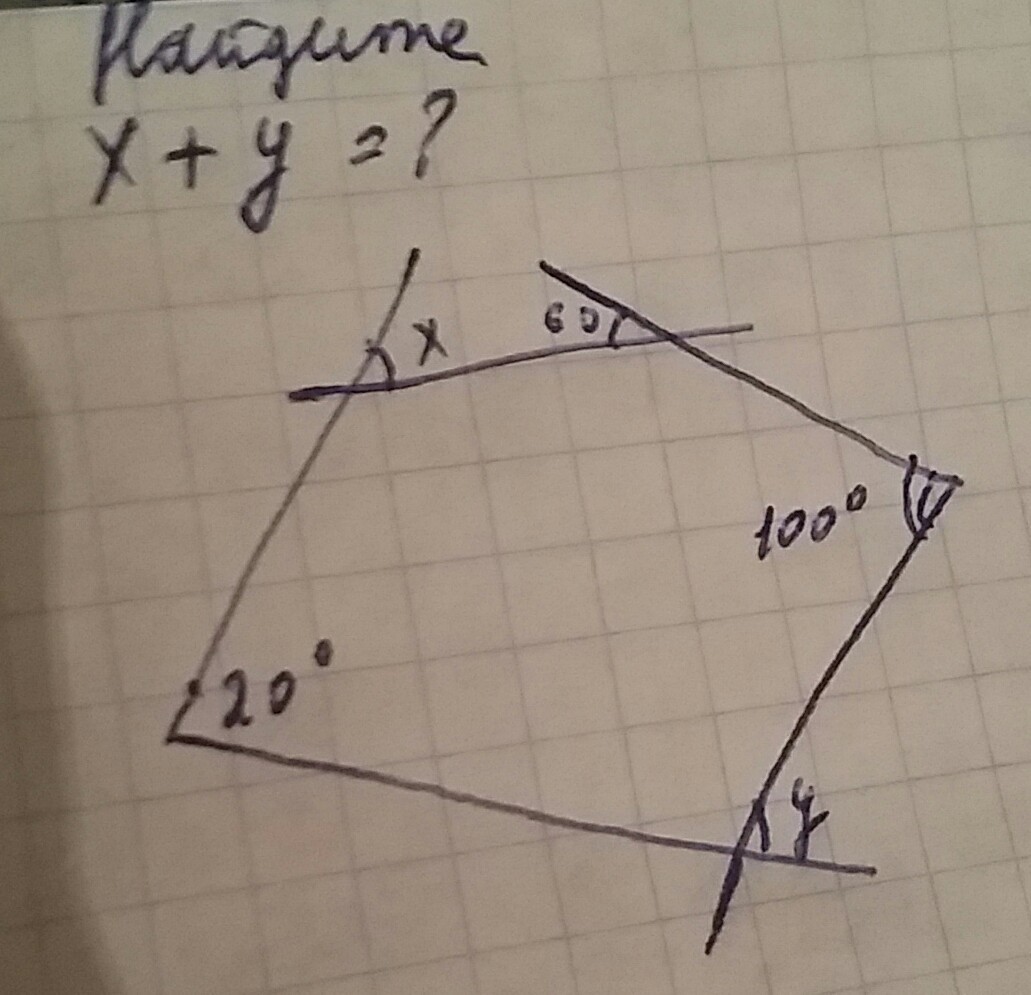 Найдите
x + y = ?
x
60
100°
20°
y